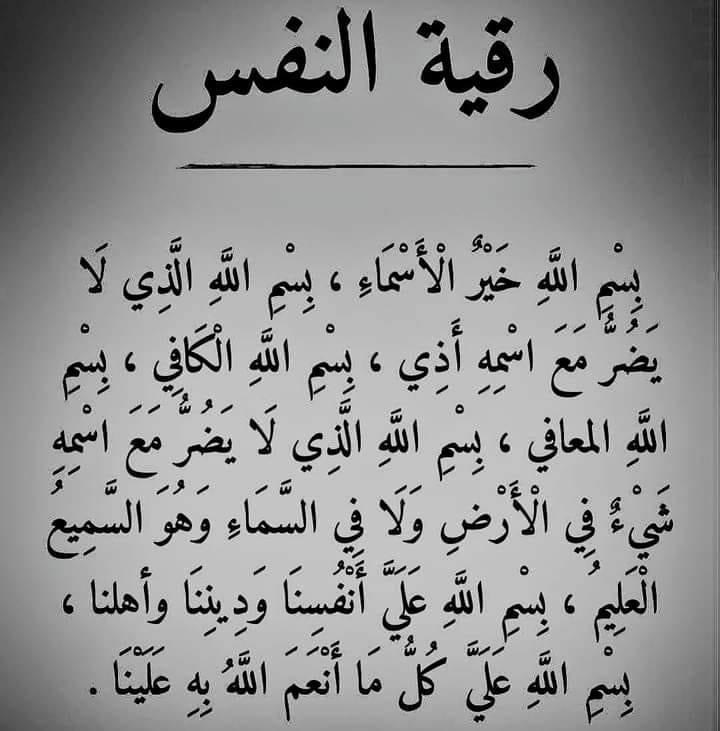 رقية النفس
بِسْمِ اللَّهِ خَيْرٌ الْأَسْمَاءِ ، بِسْمِ اللَّهِ الَّذِي لَا
يَضُرُّ مَعَ اسْمِهِ أَذِي ، بِسْمِ اللَّهِ الْكَافِي ، بِسْمِ
اللَّهِ المعافي ، بِسْمِ اللَّهِ الَّذِي لَا يَضُرُّ مَعَ اسْمِهِ
شَيْءٌ فِي الْأَرْضِ وَلَا فِي السَّمَاءِ وَهُوَ السَّمِيعُ
الْعَلِيمُ ، بِسْمِ اللَّهِ عَلَيَّ أَنْفُسِنَا وَدِينِنَا وأهلنا ،
بِسْمِ اللَّهِ عَلَيَّ كُلُّ مَا أَنْعَمَ اللَّهُ بِهِ عَلَيْنَا .